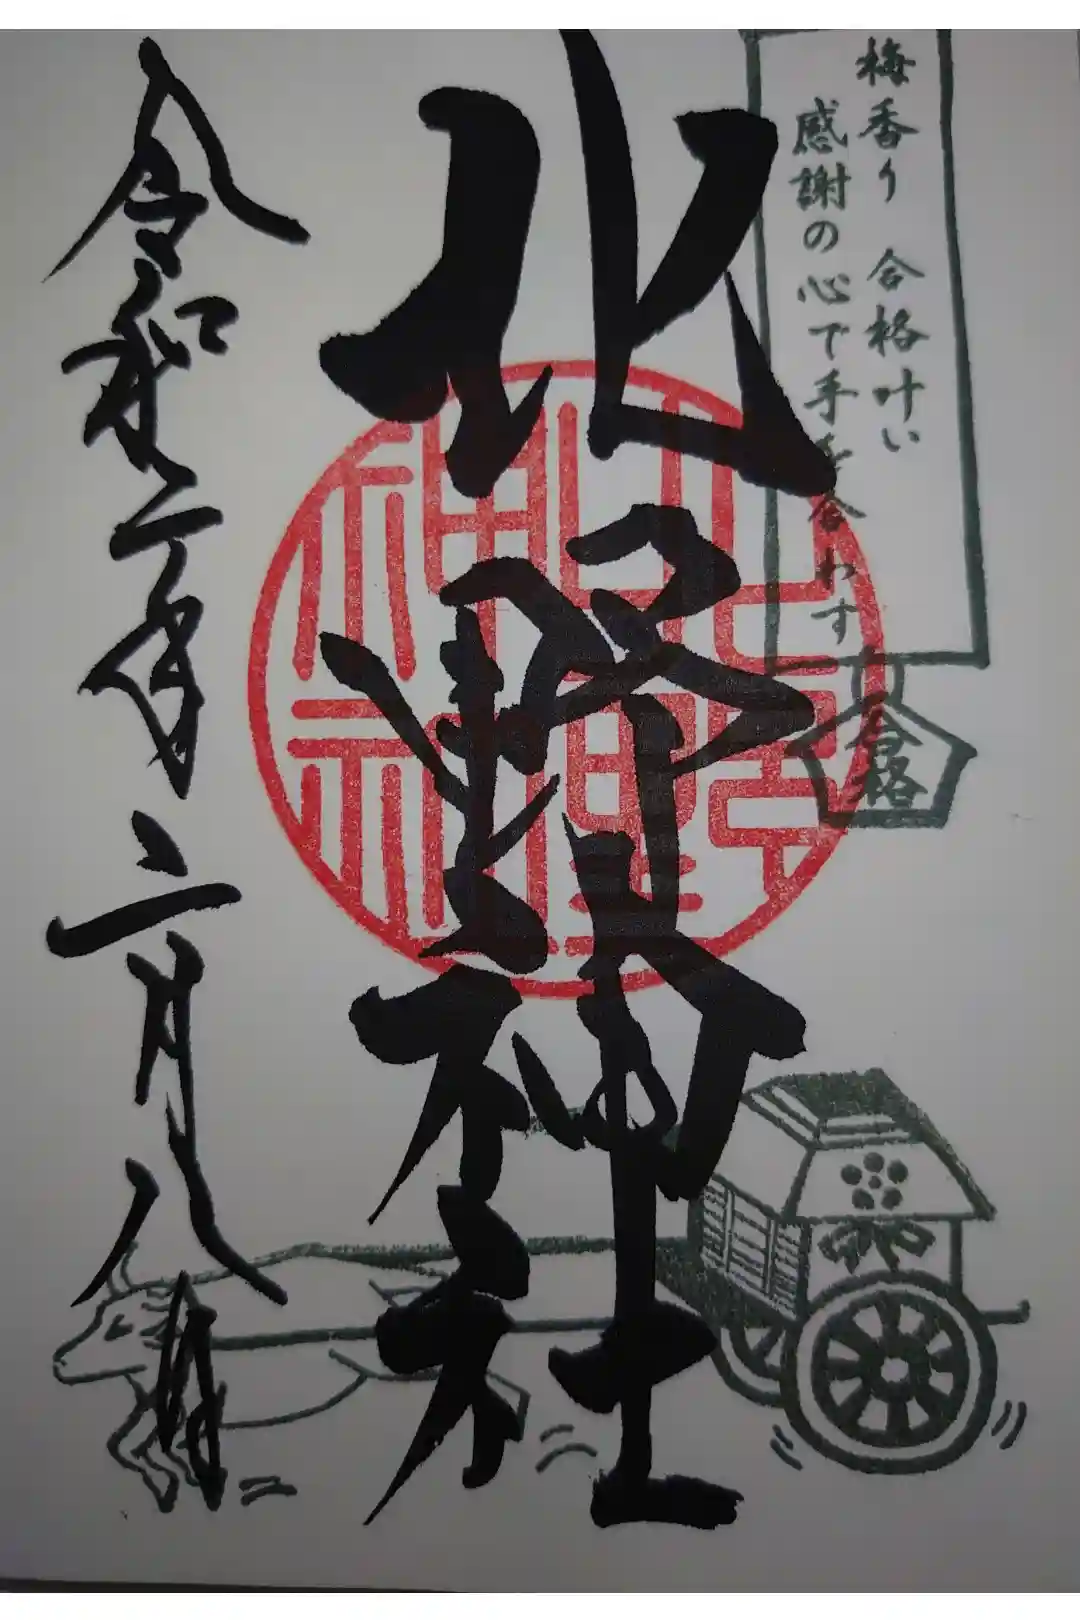 梅香り 合格叶い
感謝の心で手を合わす
合格
北野神社
北野神社
令和二年二月八日